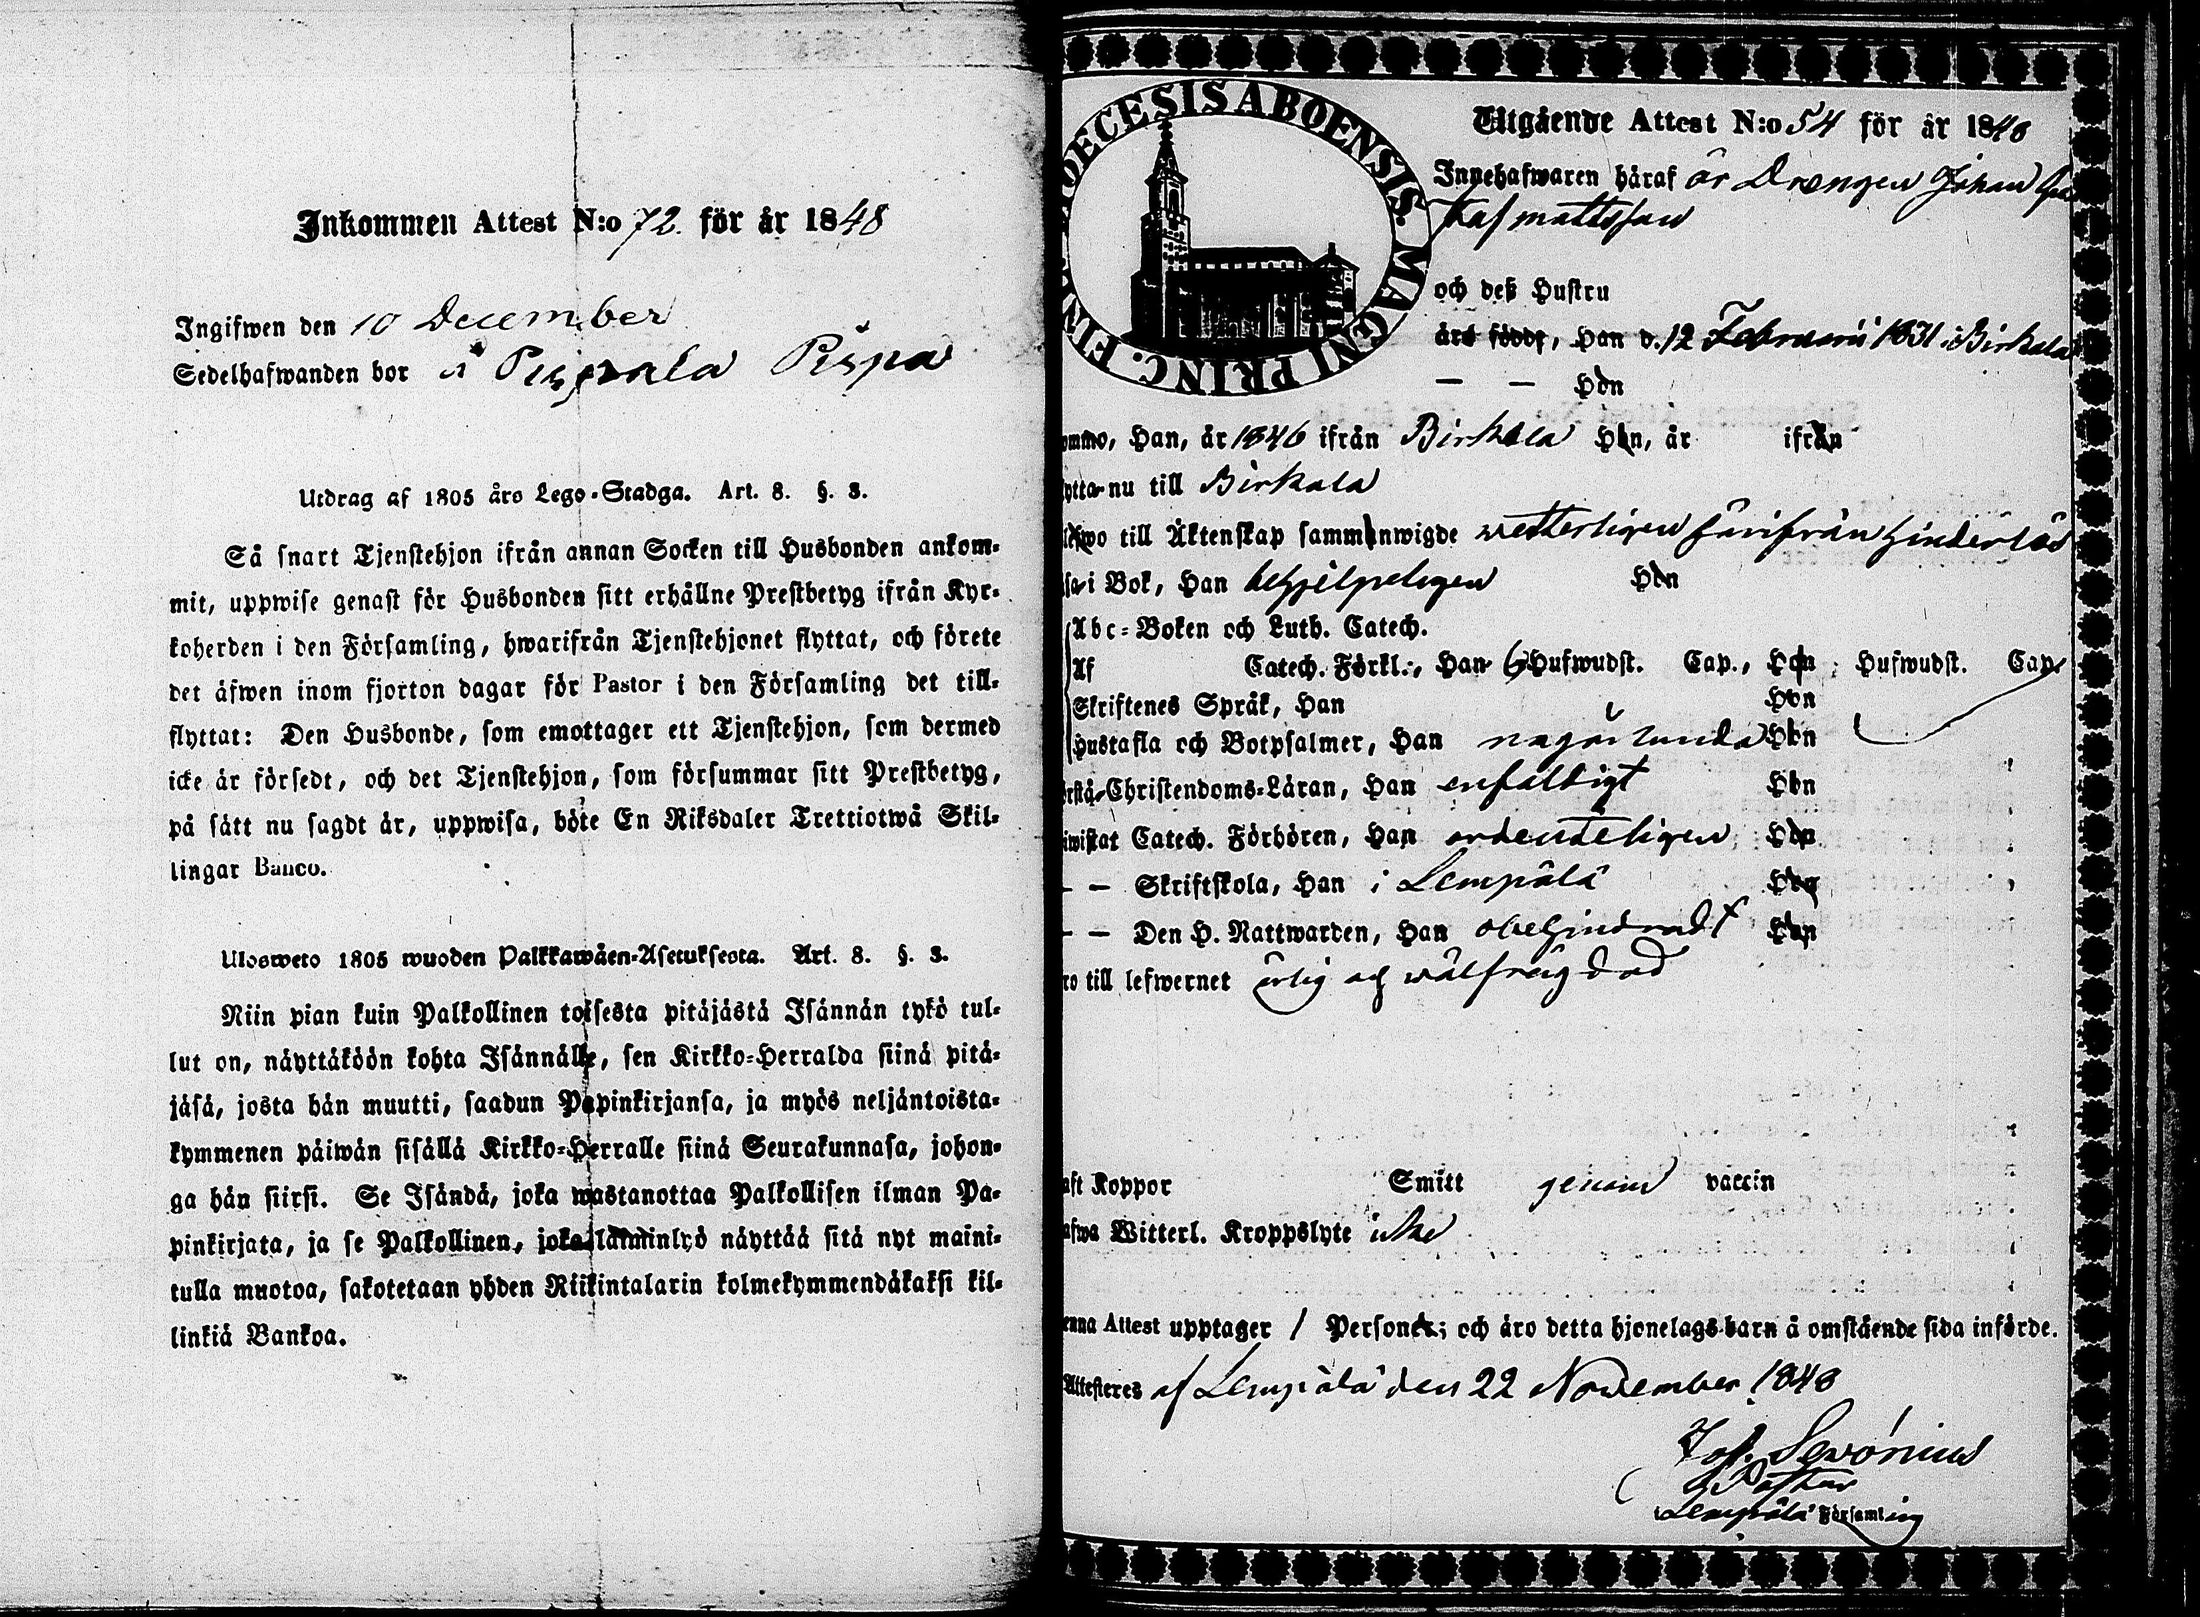 Inkommen Attest N:o 72. för år 1848
Ingifwen den 10 December
Sedelhafwanden bor i Pispala Pispa
Utdrag af 1805 års Lego-Stadga. Art. 8. §. 3.
Så snart Tjenstehjon ifrån annan Socken till Husbonden ankom-
mit, uppwise genast för Husbonden sitt erhållne Prestbetyg ifrån Kyr-
koherden i den Församling, hwarifrån Tjenstehjonet flyttat, och förete
det äfwen inom fjorton dagar för Pastor i den Församling det till-
flyttat: Den Husbonde, som emottager ett Tjenstehjon, som dermed
icke är försedt, och det Tjenstehjon, som försummar sitt Prestbetyg,
på sätt nu sagdt är, uppwisa, böte En Riksdaler Trettiotwå Skil-
lingar Banco.
Ulosweto 1805 wuoden Palkkawäen-Asetuksesta. Art. 8. §. 3.
Niin pian kuin Palkollinen toisesta pitäjästä Isännän tykö tul-
lut on, näyttäköön kohta Isännälle, sen Kirkko-Herralda siinä pitä-
jäsä, josta hän muutti, saadun Papinkirjansa, ja myös neljäntoista-
kymmenen päiwän sisällä Kirkko-Herralle siinä Seurakunnasa, johon-
ga hän siirsi. Se Isändä, joka wastanottaa Palkollisen ilman Pa-
pinkirjata, ja se Palkollinen, joka laiminlyö näyttää sitä nyt maini-
tulla muotoa, sakotetaan yhden Riikintalarin kolmekymmendäkaksi kil-
linkiä Bankoa.
DIOECESIS ABOENSIS. MAGNI PRINC. FINL.
Utgående Attest N:o 54 för år 1848
Innehafwaren häraf är Drengen Johan Gus
taf Mattsson
och deß Hustru
äro födde, Han d. 12 Februarii 1831 i Birkala
— — Hon
ommo, Han, år 1846 ifrån Birkala Hon, år ifrån
ytta nu till Birkala
lefwo till Äktenskap sammanwigde wetterligen härifrån hinderlös
sa i Bok, Han behjelpeligen Hon
Abc-Boken och Luth. Catech.
Af Catech. Förkl., Han 6 Hufwudst. Cap., Hon Hufwudst. Cap.
Skriftenes Språk, Han Hon
Hustafla och Botpsalmer, Han någorlunda Hon
örstå Christendoms-Läran, Han enfaldigt Hon
iwistat Catech. Förhören, Han ordenteligen Hon
— — Skriftskola, Han i Lempälä Hon
— — Den H. Nattwarden, Han obehindradt Hon
ro till lefwernet ärlig och wälfrägdad
aft Koppor Smitt genom vaccin
afwa Witterl. Kroppslyte icke
enna Attest upptager 1 Personer; och äro detta hjonelags barn å omstående sida införde.
Attesteres af Lempälä den 22 November 1848
Joh. Sevónius
Pastor
Lempälä Församling